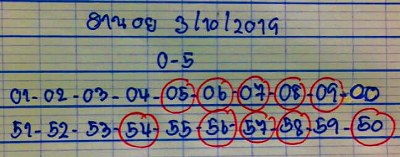 ฮานอย 3/10/2019
0-5
01-02-03-04-05-06-07-08-09-00
51-52-53-54-55-56-57-58-59-50